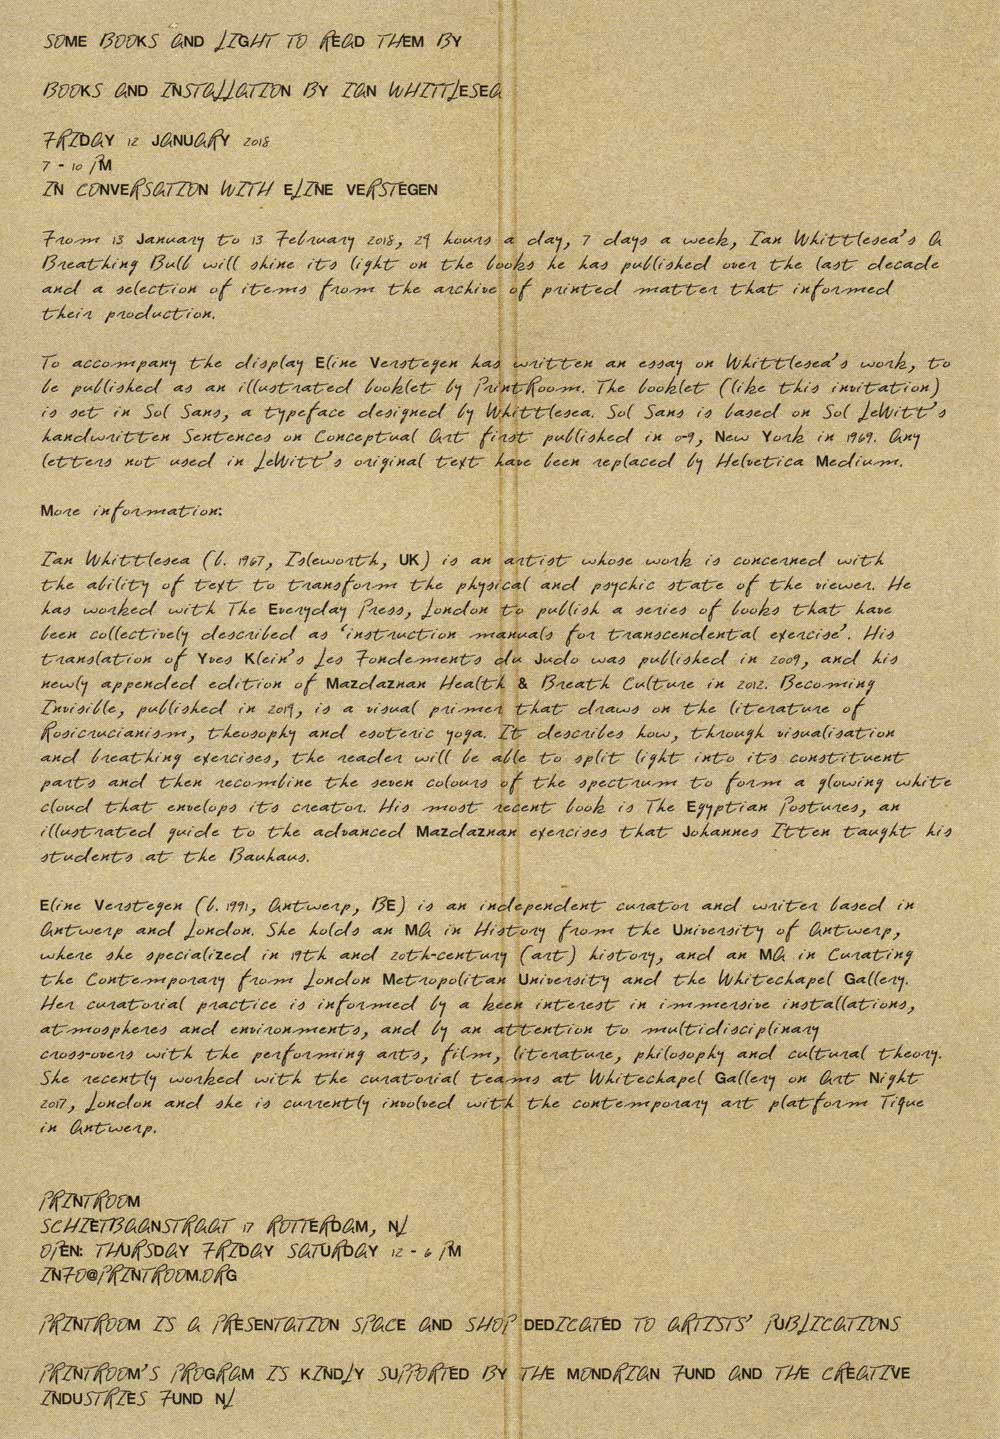 SOME BOOKS AND LIGHT TO READ THEM BY
BOOKS AND INSTALLATION BY IAN WHITTLESEA
FRIDAY 12 JANUARY 2018
7 - 10 PM
IN CONVERSATION WITH ELINE VERSTEGEN
From 13 January to 13 February 2018, 24 hours a day, 7 days a week, Ian Whittlesea's A
Breathing Bulb will shine its light on the books he has published over the last decade
and a selection of items from the archive of printed matter that informed
their production.
To accompany the display Eline Verstegen has written an essay on Whittlesea's work, to
be published as an illustrated booklet by PrintRoom. The booklet (like this invitation)
is set in Sol Sans, a typeface designed by Whittlesea. Sol Sans is based on Sol LeWitt's
handwritten Sentences on Conceptual Art first published in 0-9, New York in 1969. Any
letters not used in LeWitt's original text have been replaced by Helvetica Medium.
More information:
Ian Whittlesea (b. 1967, Isleworth, UK) is an artist whose work is concerned with
the ability of text to transform the physical and psychic state of the viewer. He
has worked with The Everyday Press, London to publish a series of books that have
been collectively described as 'instruction manuals for transcendental exercise'. His
translation of Yves Klein's Les Fondements du Judo was published in 2009, and his
newly appended edition of Mazdaznan Health & Breath Culture in 2012. Becoming
Invisible, published in 2014, is a visual primer that draws on the literature of
Rosicrucianism, theosophy and esoteric yoga. It describes how, through visualisation
and breathing exercises, the reader will be able to split light into its constituent
parts and then recombine the seven colours of the spectrum to form a glowing white
cloud that envelops its creator. His most recent book is The Egyptian Postures, an
illustrated guide to the advanced Mazdaznan exercises that Johannes Itten taught his
students at the Bauhaus.
Eline Verstegen (b. 1991, Antwerp, BE) is an independent curator and writer based in
Antwerp and London. She holds an MA in History from the University of Antwerp,
where she specialized in 19th and 20th-century (art) history, and an MA in Curating
the Contemporary from London Metropolitan University and the Whitechapel Gallery.
Her curatorial practice is informed by a keen interest in immersive installations,
atmospheres and environments, and by an attention to multidisciplinary
cross-overs with the performing arts, film, literature, philosophy and cultural theory.
She recently worked with the curatorial teams at Whitechapel Gallery on Art Night
2017, London and she is currently involved with the contemporary art platform Tique
in Antwerp.
PRINTROOM
SCHIETBAANSTRAAT 17 ROTTERDAM, NL
OPEN: THURSDAY FRIDAY SATURDAY 12 - 6 PM
INFO@PRINTROOM.ORG
PRINTROOM IS A PRESENTATION SPACE AND SHOP DEDICATED TO ARTISTS' PUBLICATIONS
PRINTROOM'S PROGRAM IS KINDLY SUPPORTED BY THE MONDRIAN FUND AND THE CREATIVE
INDUSTRIES FUND NL